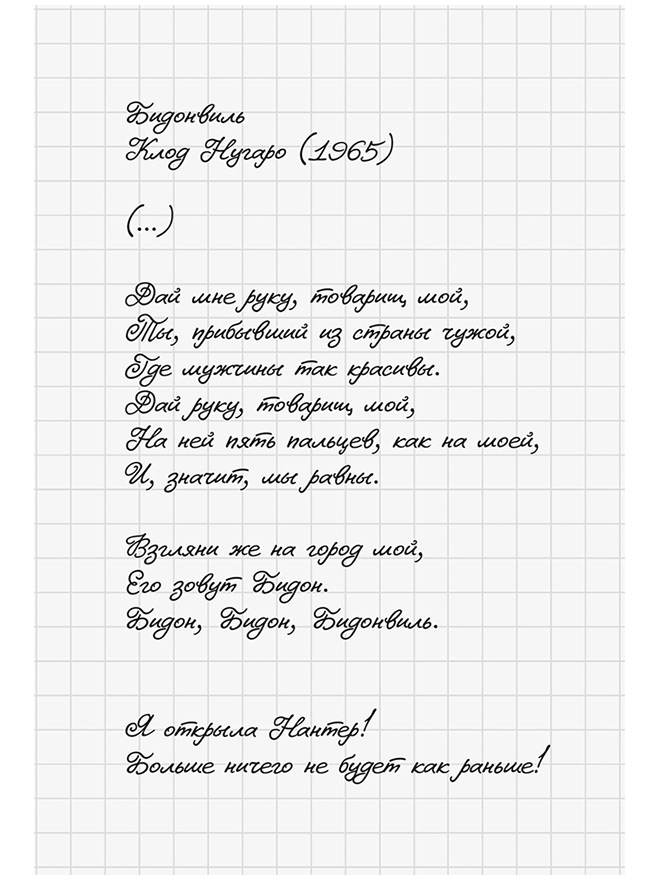 Бидонвиль
Клод Нугаро (1965)
(...)
Дай мне руку, товарищ мой,
Ты, прибывший из страны чужой,
Где мужчины так красивы.
Дай руку, товарищ мой,
На ней пять пальцев, как на моей,
И, значит, мы равны.
Взгляни же на город мой,
Его зовут Бидон.
Бидон, Бидон, Бидонвиль.
Я открыла Нантер!
Больше ничего не будет как раньше!